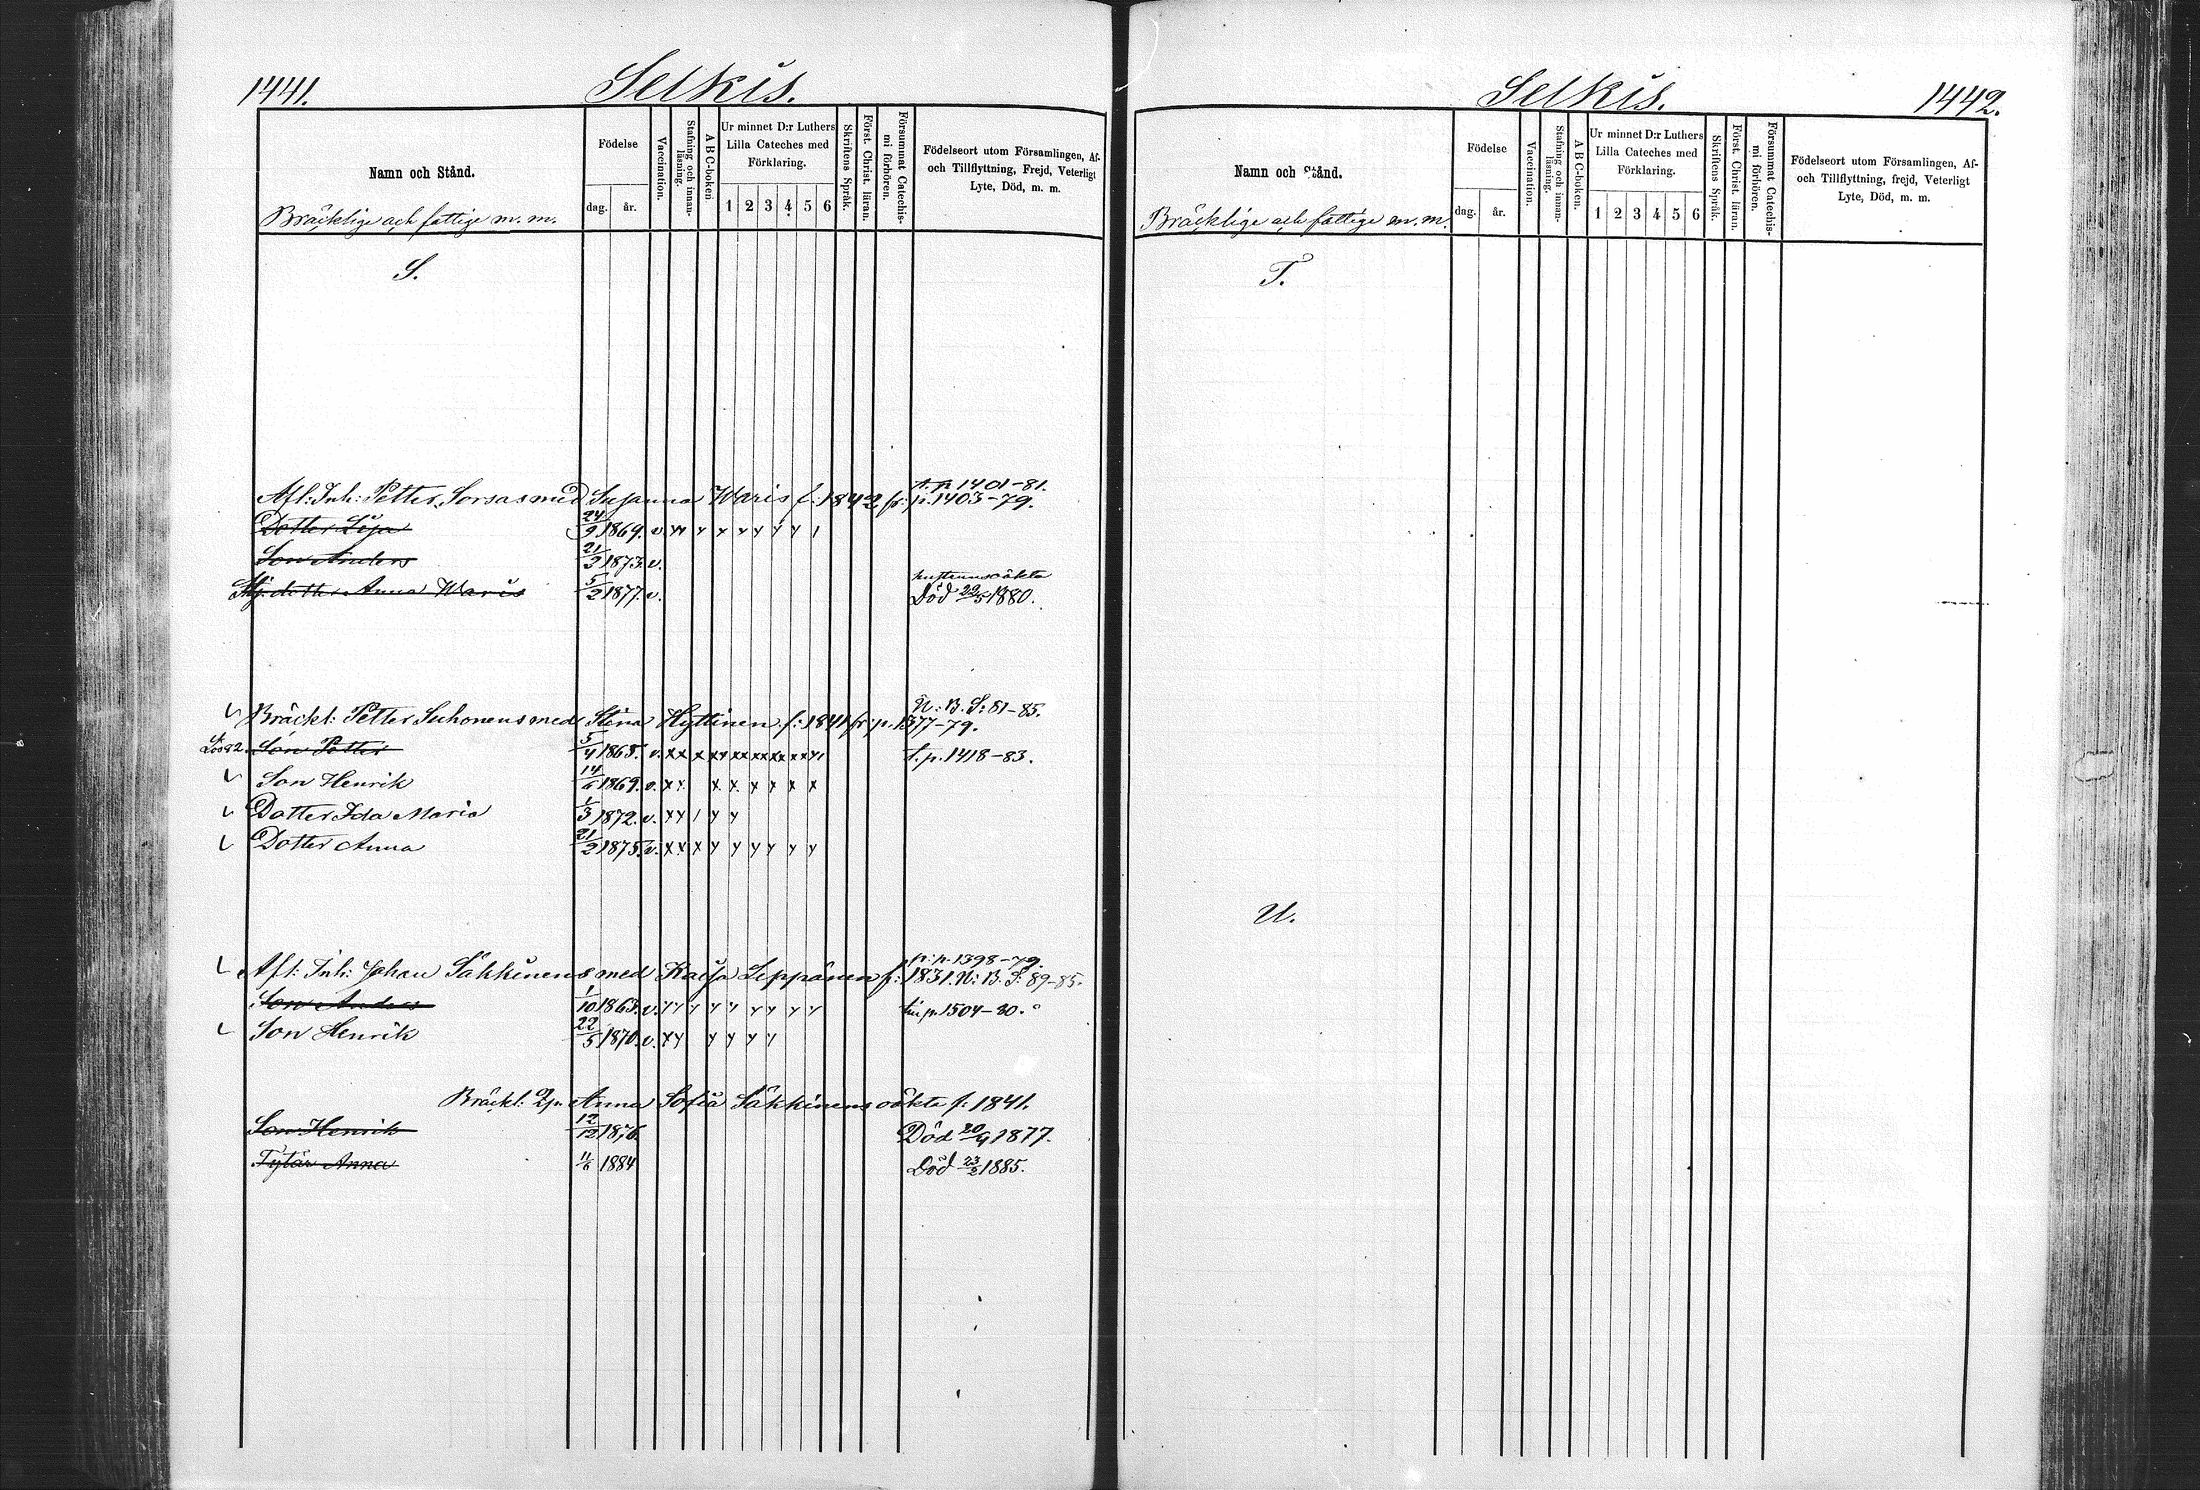 1441.
Selkis.
Namn och Stånd.
Bräcklige och fattige m. m.
Födelse
dag.
år.
Vaccination.
Stafning och innan-
läsning.
A B C-boken
Ur minnet D:r Luthers
Lilla Cateches med
Förklaring.
1 2 3 4 5 6
Skriftens Språk.
Först. Christ. läran.
Försummat Catechis-
mi förhören.
Födelseort utom Församlingen, Af-
och Tillflyttning, Frejd, Veterligt
Lyte, Död, m. m.
S.
t. p 1401-81.
Afl: Inh: Petter Sorsas med Susanna Waris f: 1842 fr: p. 1403-79.
Dotter Lisa 24/9 1869. v.
Son Anders 21/2 1873. v.
hustruns oäkta
dotter Anna Waris 5/2 1877. v. Död 22/5 1880.
N: B. S: 81-85.
Bräckl: Petter Suhonens med Stina Hyttinen f: 1841 fr: p. 1377-79.
Son Petter 5/4 1865. v. t. p. 1418-83.
Son Henrik 14/6 1869. v.
Dotter Ida Maria 1/3 1872. v.
Dotter Anna 21/2 1875. v.
fr: p. 1398-79.
Afl: Inh: Johan Säkkinens med Kaisa Seppänen f: 1831. N: B. S: 89-85.
Son Anders 1/10 1863. v. p. 1504-80.
Son Henrik 22/5 1870. v.
Bräckl: Qp. Anna Sofia Säkkinens oäkta f: 1841.
Son Henrik 12/12 1876. Död 20/9 1877.
Tytär Anna 11/6 1884 Död 23/2 1885.
Selkis.
1442.
Namn och Stånd.
Bräcklige och fattige m. m.
Födelse
dag.
år.
Vaccination.
Stafning och innan-
läsning.
A B C-boken.
Ur minnet D:r Luthers
Lilla Cateches med
Förklaring.
1 2 3 4 5 6
Skriftens Språk.
Först. Christ. läran.
Försummat Catechis-
mi förhören.
Födelseort utom Församlingen, Af-
och Tillflyttning, frejd, Veterligt
Lyte, Död, m. m.
T.
U.